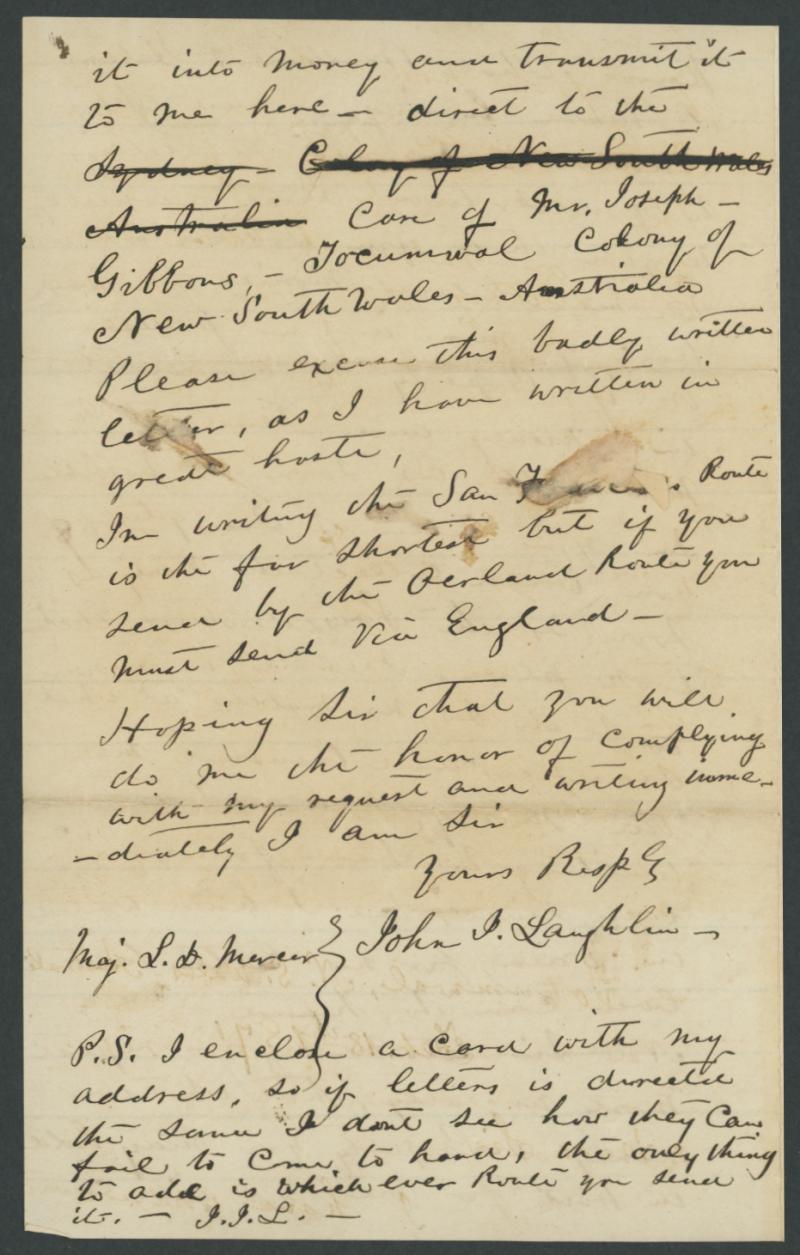 it into money and transmit it
to me here — direct to the
Sydney — Colony of New South Wales
Australia Care of Mr. Joseph —
Gibbons, — Tocumwal Colony of
New South Wales — Australia
Please excuse this badly written
letter, as I have written in
great haste,
In writing the San Route
is the far shortest but if you
send by the Overland Route you
must send Via England —
Hoping Sir that you will
do me the honor of complying
with my request and writing imme-
-diately I am Sir
Yours Resply
John I. Laughlin —
Maj. L. D. Mercier
P.S. I enclose a card with my
address, so if letters is directed
the same I dont see how they can
fail to come to hand, the only thing
to add is which ever Route you send
it. — J.I.L. —